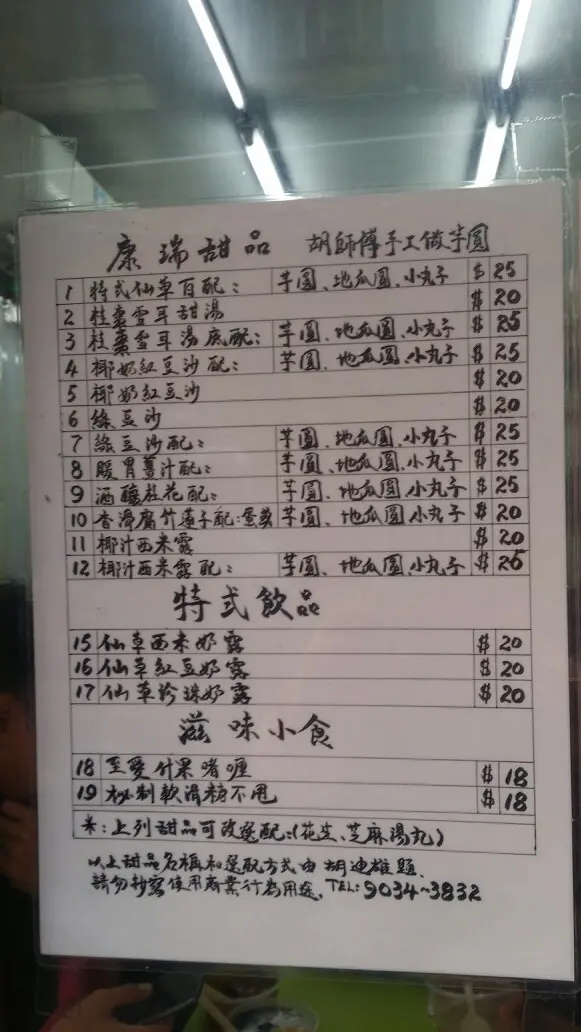 康瑞甜品 胡師傅手工做芋圓
1 特式仙草百配: 芋圓、地瓜圓、小丸子 $25
2 桂棗雪耳甜湯 $20
3 桂棗雪耳湯底配: 芋圓、地瓜圓、小丸子 $25
4 椰奶紅豆沙配: 芋圓、地瓜圓、小丸子 $25
5 椰奶紅豆沙 $20
6 綠豆沙 $20
7 綠豆沙配: 芋圓、地瓜圓、小丸子 $25
8 暖胃薑汁配: 芋圓、地瓜圓、小丸子 $25
9 酒釀桂花配: 芋圓、地瓜圓、小丸子 $25
10 杏滑腐竹蓮子配: 芋圓、地瓜圓、小丸子 $20
11 椰汁西米露 $20
12 椰汁西米露配: 芋圓、地瓜圓、小丸子 $25
特式飲品
15 仙草西米奶露 $20
16 仙草紅豆奶露 $20
17 仙草珍珠奶露 $20
滋味小食
18 至愛什果啫喱 $18
19 秘制軟滑糖不甩 $18
*:上列甜品可改選配:(花生、芝麻湯丸)
以上甜品名稱和選配方式由胡迪雄題、
請勿抄寫使用商業行為用途。TEL:9034~3832